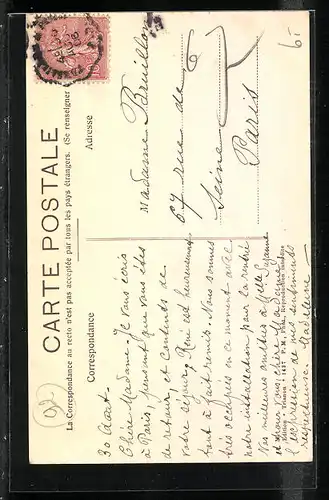 CARTE POSTALE
La Correspondance au recto n'est pas acceptée par tous les pays étrangers. (Se renseigner
Correspondance
Adresse
30 Août.
Chère Madame. Je vous écris
à Paris, pensant que vous êtes
de retour, et contents de
votre séjour. René est heureusement
tout à fait remis. Nous sommes
très occupées en ce moment avec
notre installation pour la rentrée
Mes meilleures amitiés à Melle Suzanne
et pour vous, chère Madame,
l'expression de mes sentiments
respectueux. Madeleine
Madame Bruillon
67 rue de
Seine
Paris
Edition " Trianon " 1427 P. M. Paris, Reproduction interdite
92
6-